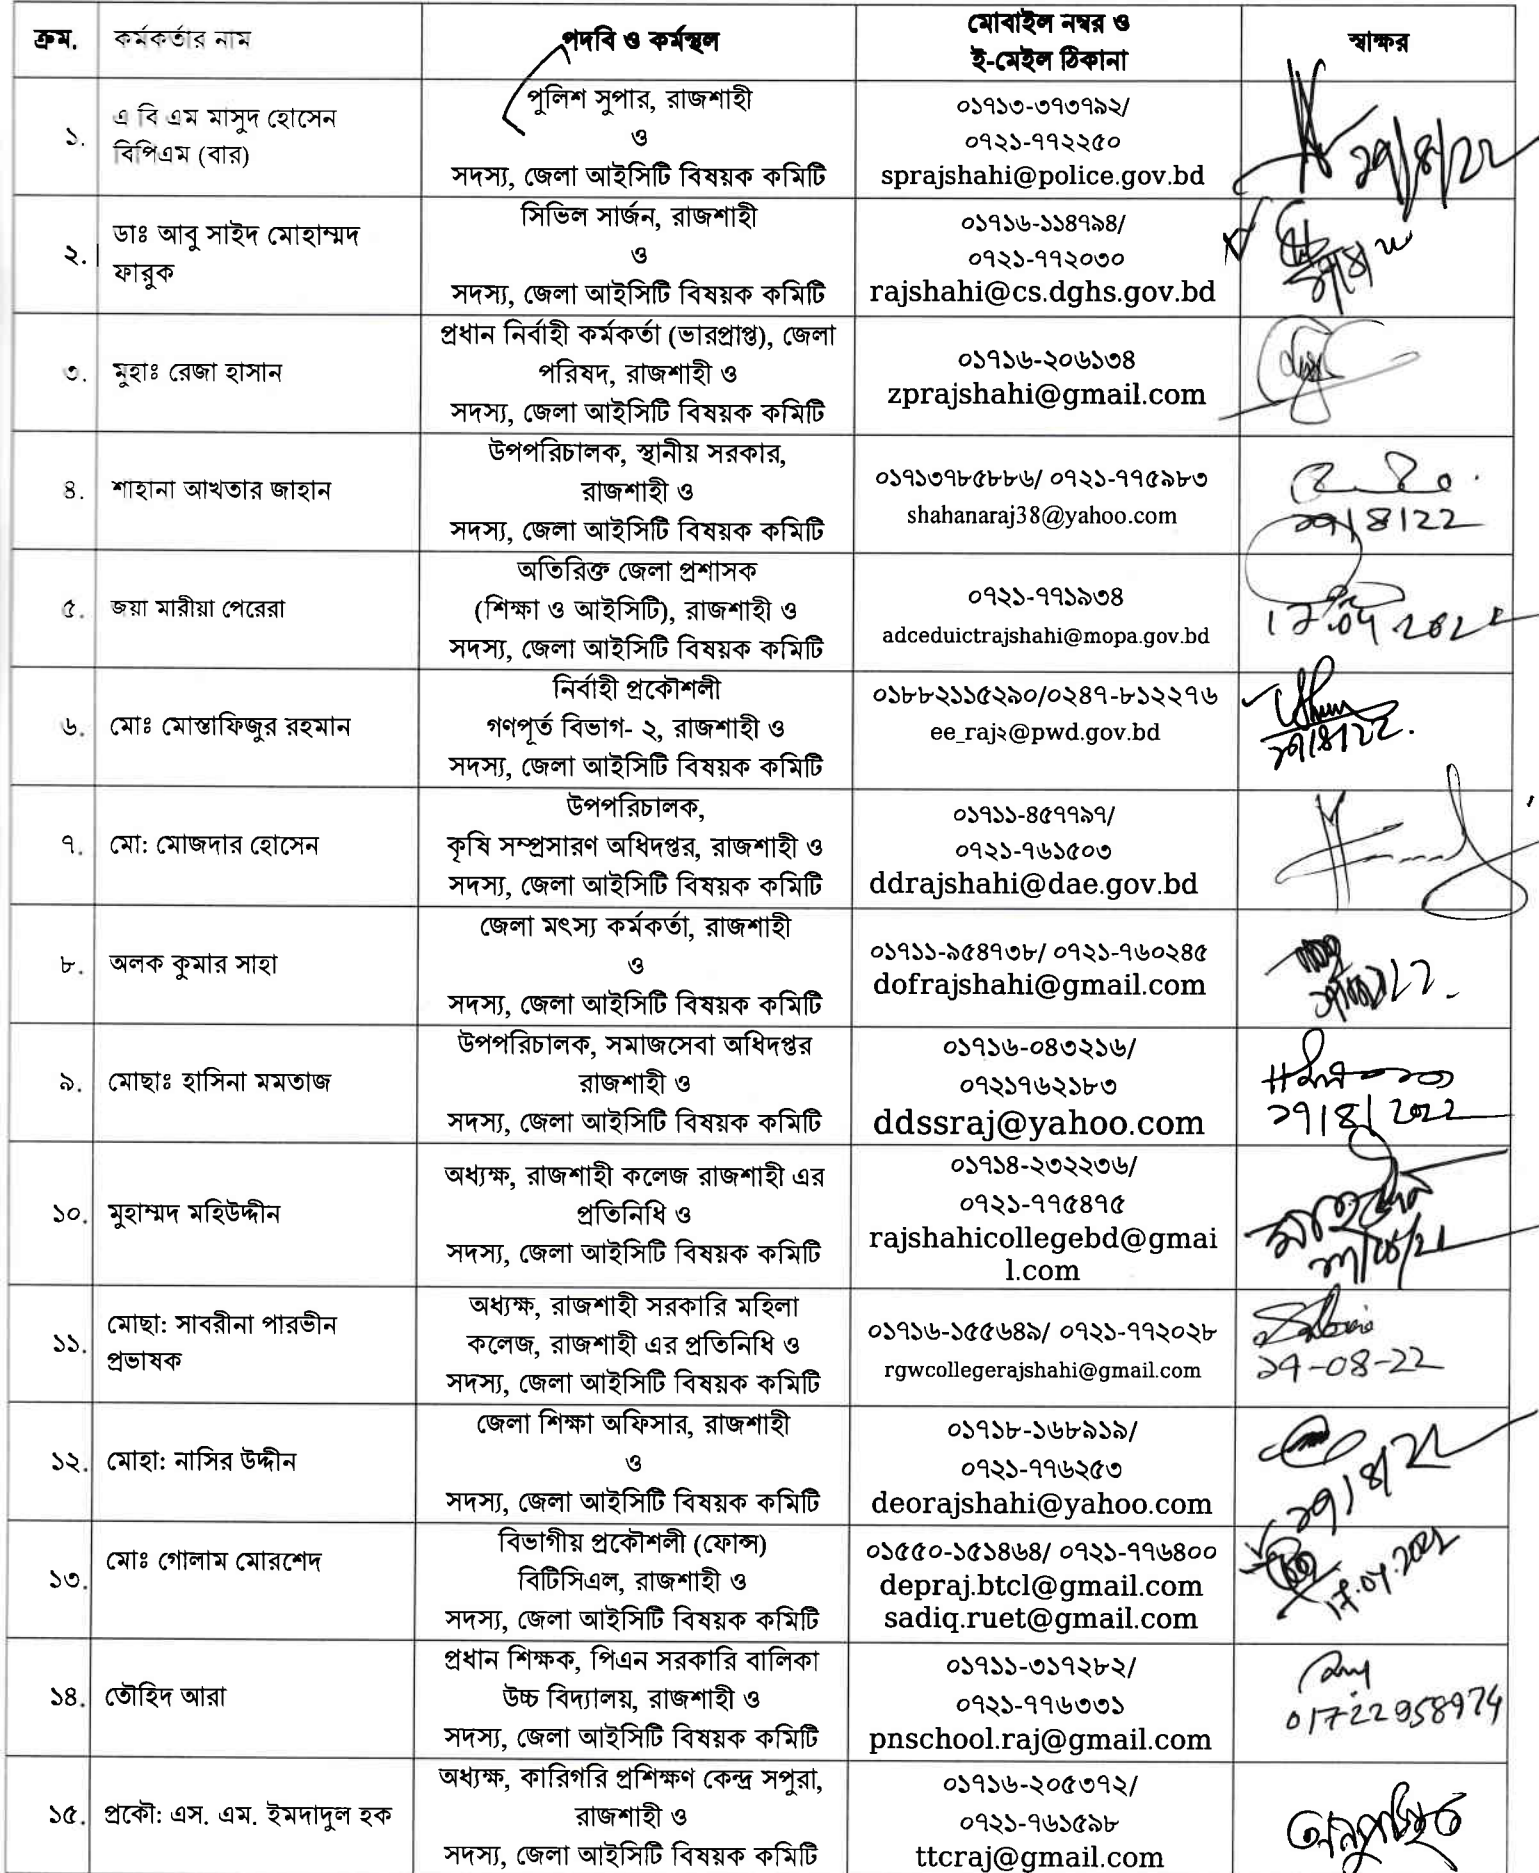 ক্রম. কর্মকর্তার নাম পদবি ও কর্মস্থল মোবাইল নম্বর ও
ই-মেইল ঠিকানা স্বাক্ষর
১. এ বি এম মাসুদ হোসেন
বিপিএম (বার)
পুলিশ সুপার, রাজশাহী
ও
সদস্য, জেলা আইসিটি বিষয়ক কমিটি
০১৭১৩-৩৭৩৭৯২/
০৭২১-৭৭২২৫০
sprajshahi@police.gov.bd
২৭/৪/২২
২. ডাঃ আবু সাইদ মোহাম্মদ
ফারুক
সিভিল সার্জন, রাজশাহী
ও
সদস্য, জেলা আইসিটি বিষয়ক কমিটি
০১৭১৬-১১৪৭৯৪/
০৭২১-৭৭২০৩০
rajshahi@cs.dghs.gov.bd
৩. মুহাঃ রেজা হাসান
প্রধান নির্বাহী কর্মকর্তা (ভারপ্রাপ্ত), জেলা
পরিষদ, রাজশাহী ও
সদস্য, জেলা আইসিটি বিষয়ক কমিটি
০১৭১৬-২০৬১৩৪
zprajshahi@gmail.com
৪. শাহানা আখতার জাহান
উপপরিচালক, স্থানীয় সরকার,
রাজশাহী ও
সদস্য, জেলা আইসিটি বিষয়ক কমিটি
০১৭১৩৭৮৫৮৮৬/ ০৭২১-৭৭৫৯৮৩
shahanaraj38@yahoo.com
২৭/৪/২২
৫. জয়া মারীয়া পেরেরা
অতিরিক্ত জেলা প্রশাসক
(শিক্ষা ও আইসিটি), রাজশাহী ও
সদস্য, জেলা আইসিটি বিষয়ক কমিটি
০৭২১-৭৭১৯৩৪
adceduictrajshahi@mopa.gov.bd
৬. মোঃ মোস্তাফিজুর রহমান
নির্বাহী প্রকৌশলী
গণপূর্ত বিভাগ- ২, রাজশাহী ও
সদস্য, জেলা আইসিটি বিষয়ক কমিটি
০১৮৮২১১৫২৯০/০২৪৭-৮১২২৭৬
ee_raj২@pwd.gov.bd
২৭/৪/২২.
৭. মো: মোজদার হোসেন
উপপরিচালক,
কৃষি সম্প্রসারণ অধিদপ্তর, রাজশাহী ও
সদস্য, জেলা আইসিটি বিষয়ক কমিটি
০১৭১১-৪৫৭৭৯৭/
০৭২১-৭৬১৫০৩
ddrajshahi@dae.gov.bd
৮. অলক কুমার সাহা
জেলা মৎস্য কর্মকর্তা, রাজশাহী
ও
সদস্য, জেলা আইসিটি বিষয়ক কমিটি
০১৭১১-৯৫৪৭৩৮/ ০৭২১-৭৬০২৪৫
dofrajshahi@gmail.com
৯. মোছাঃ হাসিনা মমতাজ
উপপরিচালক, সমাজসেবা অধিদপ্তর
রাজশাহী ও
সদস্য, জেলা আইসিটি বিষয়ক কমিটি
০১৭১৬-০৪৩২১৬/
০৭২১৭৬২১৮৩
ddssraj@yahoo.com
২৭/৪/২০২২
১০. মুহাম্মদ মহিউদ্দীন
অধ্যক্ষ, রাজশাহী কলেজ রাজশাহী এর
প্রতিনিধি ও
সদস্য, জেলা আইসিটি বিষয়ক কমিটি
০১৭১৪-২৩২২৩৬/
০৭২১-৭৭৫৪৭৫
rajshahicollegebd@gmai
l.com
১১. মোছা: সাবরীনা পারভীন
প্রভাষক
অধ্যক্ষ, রাজশাহী সরকারি মহিলা
কলেজ, রাজশাহী এর প্রতিনিধি ও
সদস্য, জেলা আইসিটি বিষয়ক কমিটি
০১৭১৬-১৫৫৬৪৯/ ০৭২১-৭৭২০২৮
rgwcollegerajshahi@gmail.com
২৭-০৪-২২
১২. মোহা: নাসির উদ্দীন
জেলা শিক্ষা অফিসার, রাজশাহী
ও
সদস্য, জেলা আইসিটি বিষয়ক কমিটি
০১৭১৮-১৬৮৯১৯/
০৭২১-৭৭৬২৫৩
deorajshahi@yahoo.com
২৭/৪/২২
১৩. মোঃ গোলাম মোরশেদ
বিভাগীয় প্রকৌশলী (ফোন্স)
বিটিসিএল, রাজশাহী ও
সদস্য, জেলা আইসিটি বিষয়ক কমিটি
০১৫৫০-১৫১৪৬৪/ ০৭২১-৭৭৬৪০০
depraj.btcl@gmail.com
sadiq.ruet@gmail.com
১৪. তৌহিদ আরা
প্রধান শিক্ষক, পিএন সরকারি বালিকা
উচ্চ বিদ্যালয়, রাজশাহী ও
সদস্য, জেলা আইসিটি বিষয়ক কমিটি
০১৭১১-৩১৭২৮২/
০৭২১-৭৭৬৩৩১
pnschool.raj@gmail.com
01722958974
১৫. প্রকৌ: এস. এম. ইমদাদুল হক
অধ্যক্ষ, কারিগরি প্রশিক্ষণ কেন্দ্র সপুরা,
রাজশাহী ও
সদস্য, জেলা আইসিটি বিষয়ক কমিটি
০১৭১৬-২০৫৩৭২/
০৭২১-৭৬১৫৯৮
ttcraj@gmail.com
অনুপস্থিত